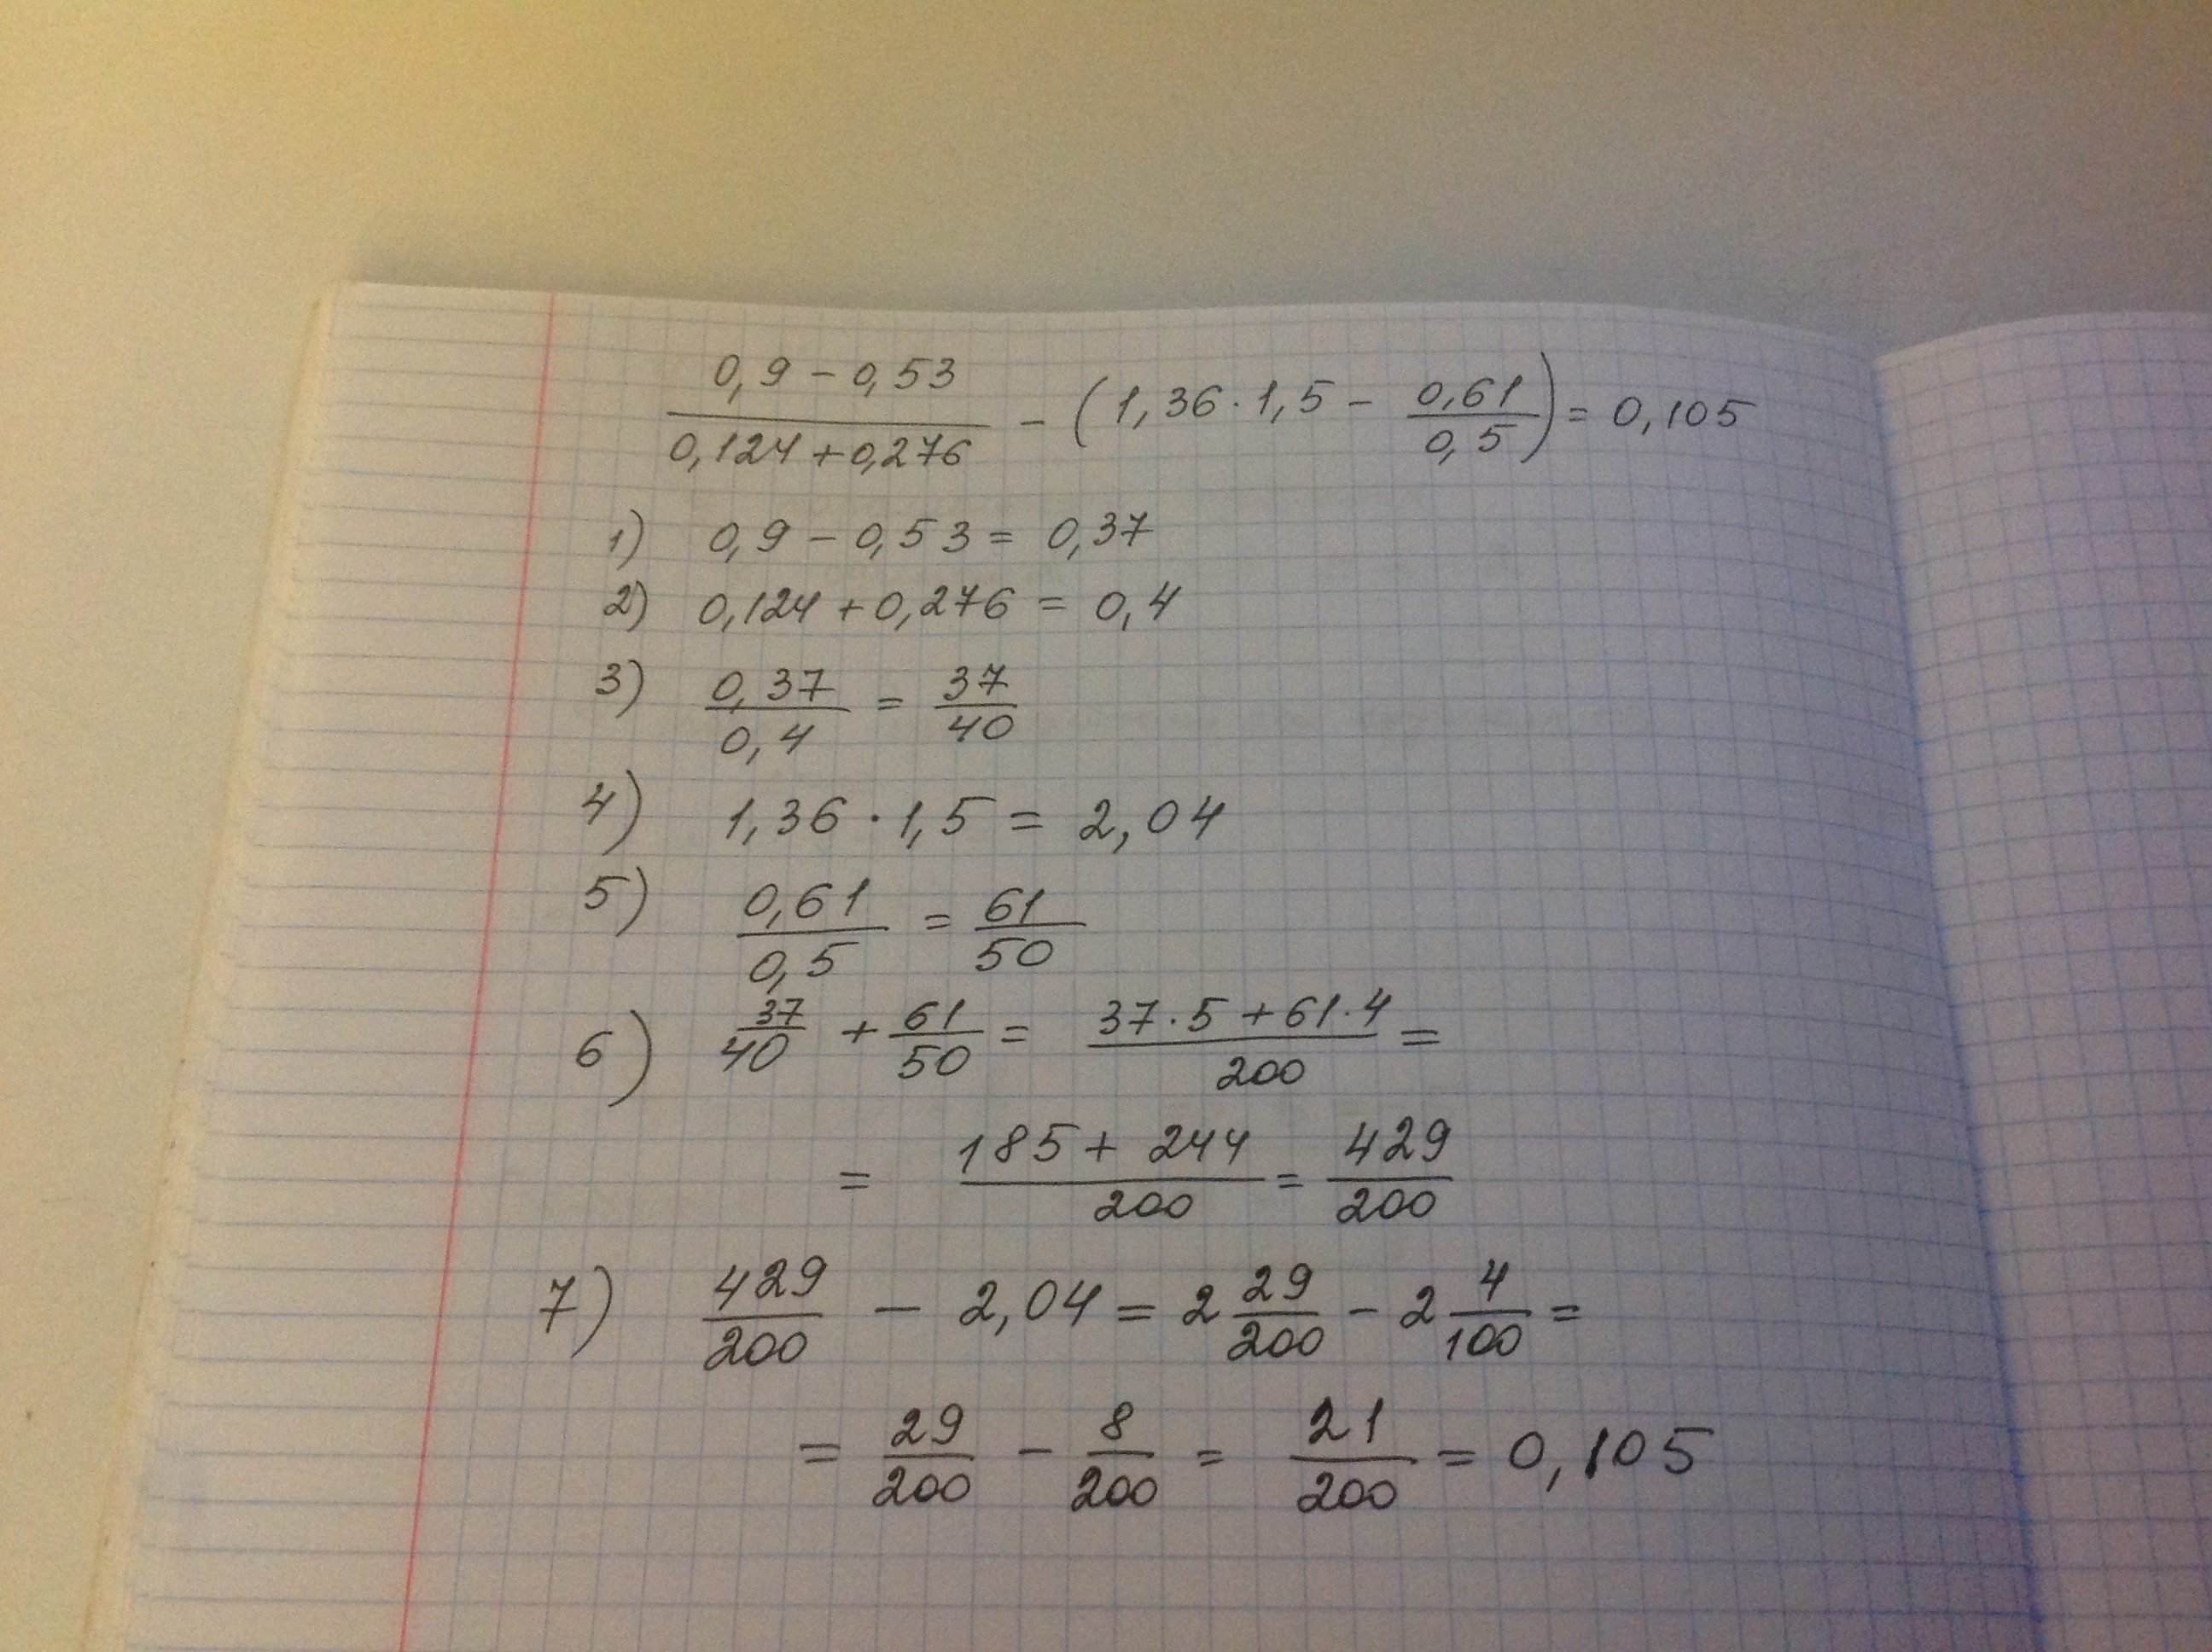 (0,9 - 0,53)/(0,124 + 0,276) - (1,36 · 1,5 - 0,61/0,5) = 0,105
1) 0,9 - 0,53 = 0,37
2) 0,124 + 0,276 = 0,4
3) 0,37/0,4 = 37/40
4) 1,36 · 1,5 = 2,04
5) 0,61/0,5 = 61/50
6) 37/40 + 61/50 = (37 · 5 + 61 · 4)/200 =
= (185 + 244)/200 = 429/200
7) 429/200 - 2,04 = 2 29/200 - 2 4/100 =
= 29/200 - 8/200 = 21/200 = 0,105